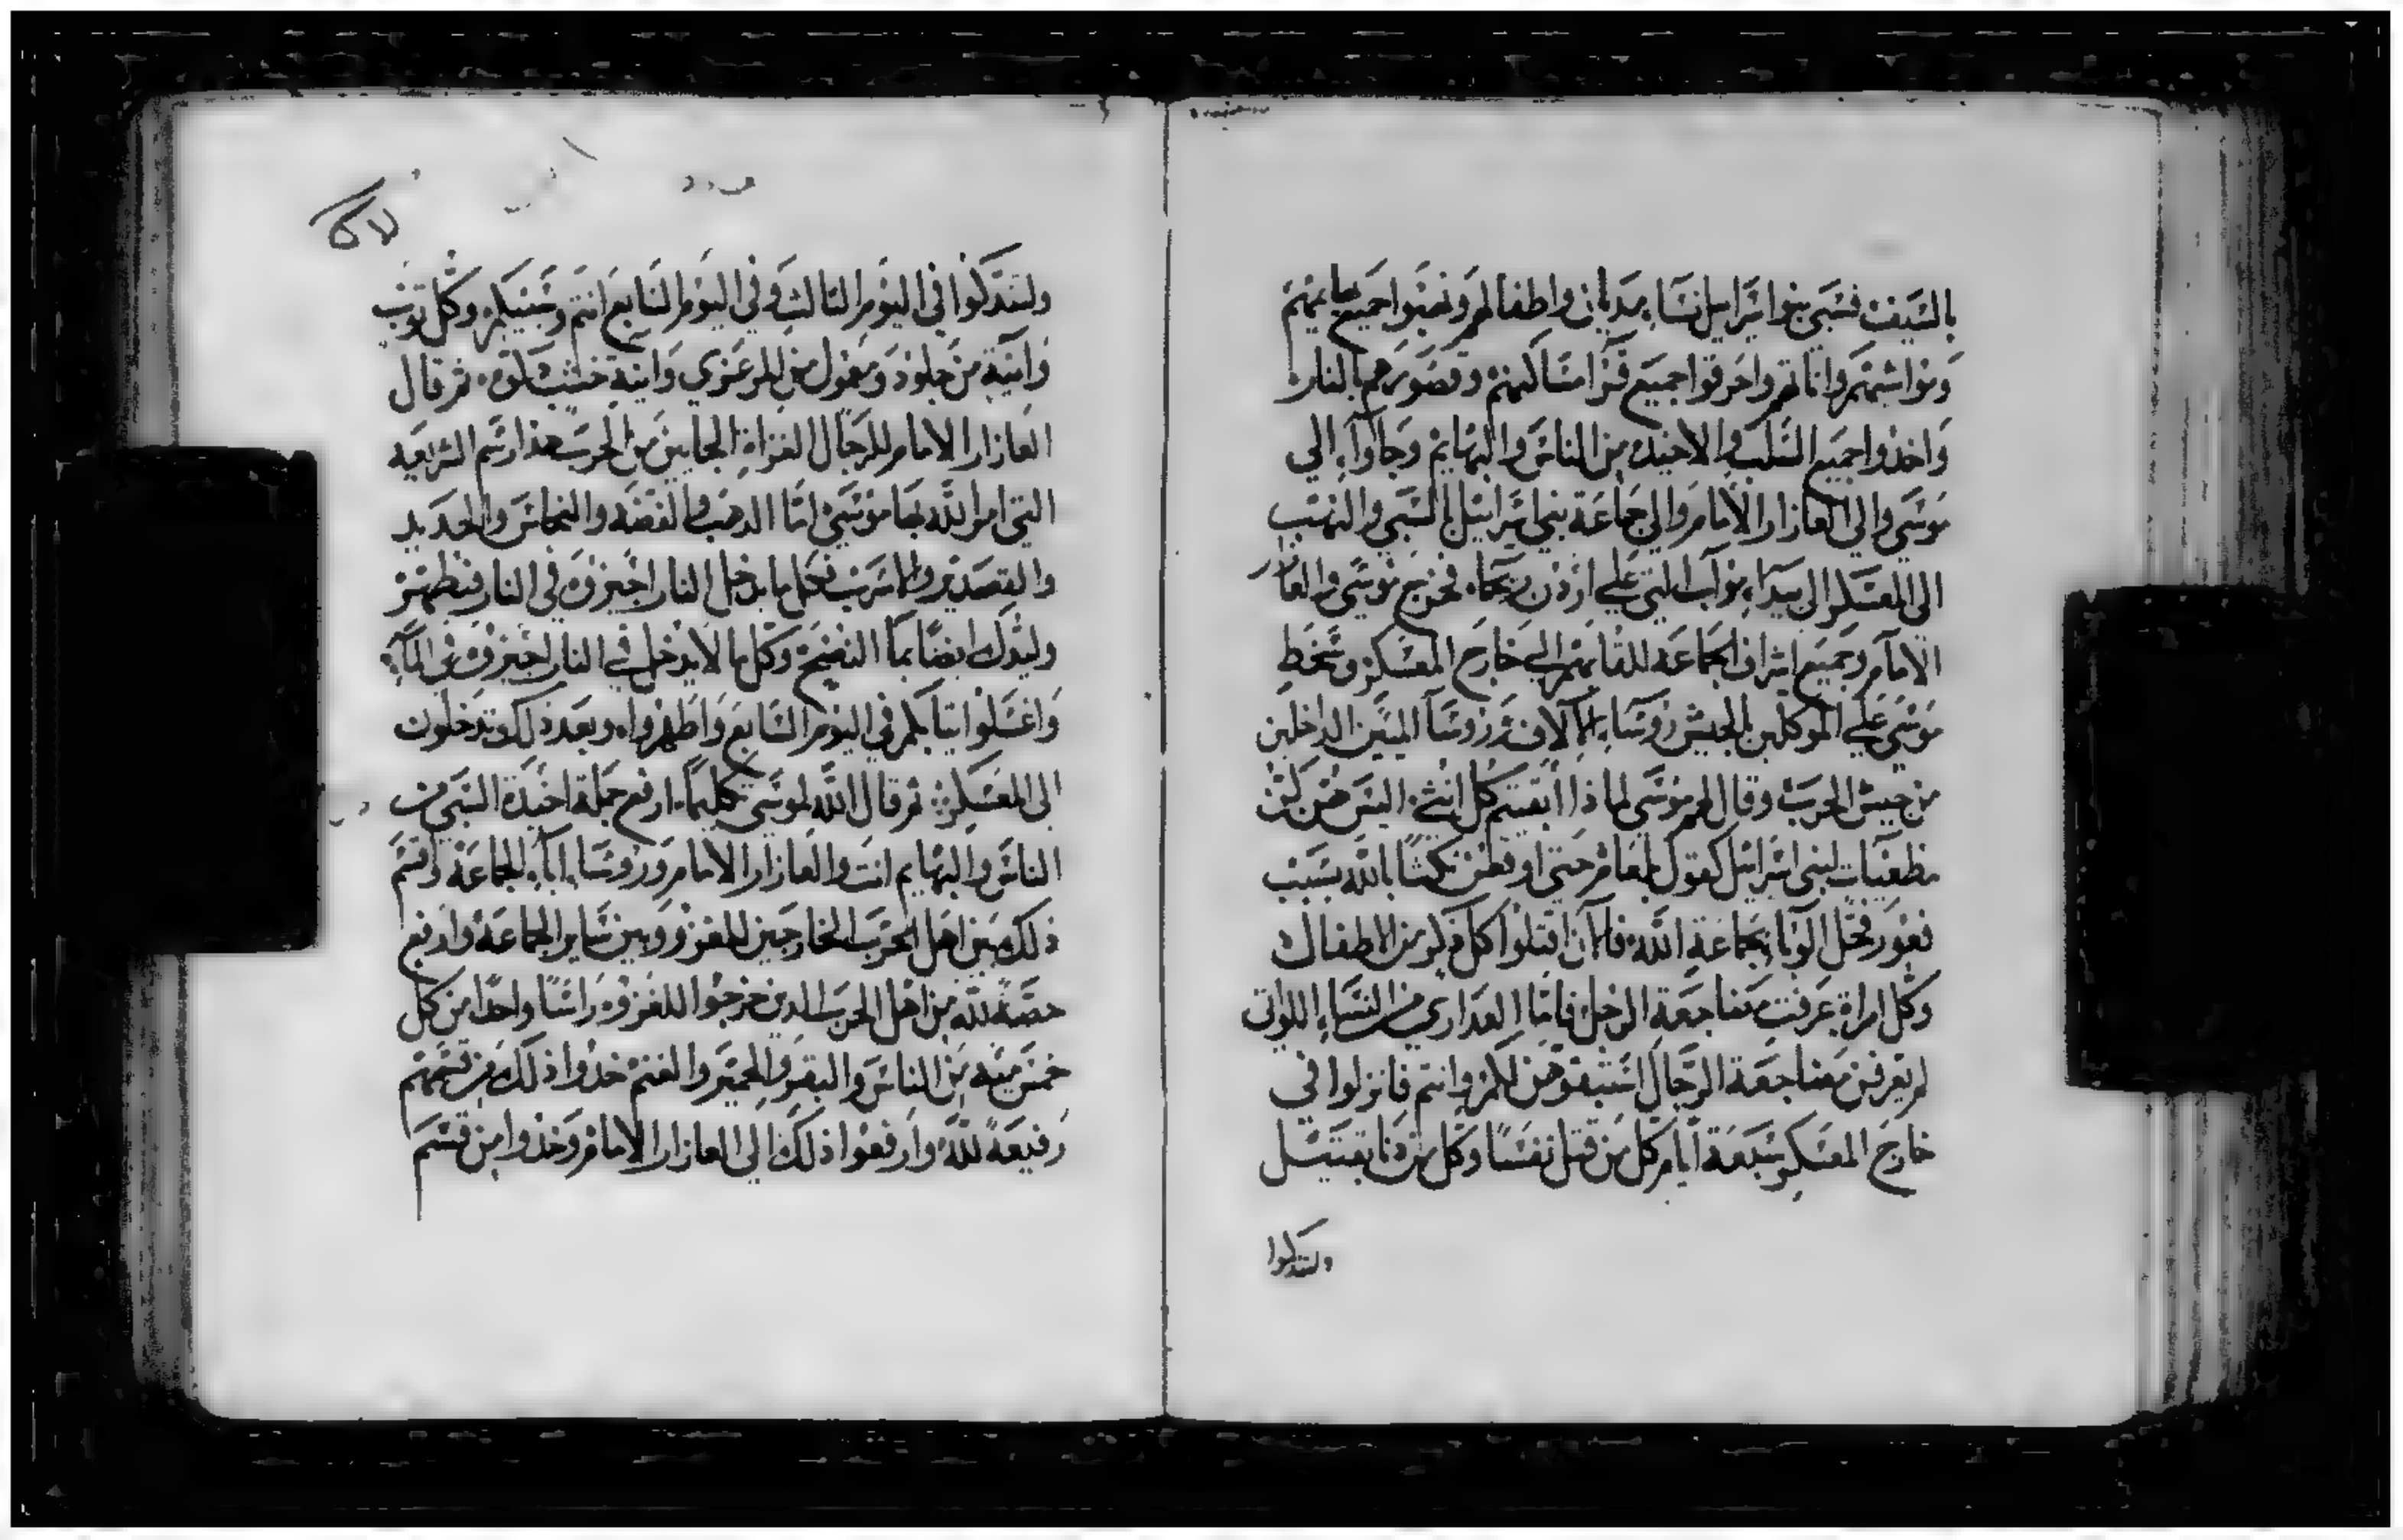 بالسيف فسبى بنوا اسراييل نسا مديان واطفالهم ونهبوا جميع بهايمهم
ومواشيهم واناثهم واحرقوا جميع قرا مساكنهم وقصورهم بالنار
واخذوا جميع السلب والاخيده من الناس والبهايم وجاوا الي
موسى والي العازار الامام والي جماعة بني اسراييل بالسبي والنهب
الى المعسكر الى بيدا مواب التي علي اردن ريحا فخرج موسى والعازار
الامام وجميع اشراف الجماعة للقايهم الي خارج المعسكر وسخط
موسى علي الموكلين بالجيش روسا الالاف وروسا الميين الداخلين
من جيش الحرب وقال لهم موسى لماذا ابقيتم كل انثى اليس هن كن
مطغيات لبني اسراييل كقول بلعام حتى اوقعن نكثا بالله بسبب
فعور فحل الوبا بجماعة الله فالان اقتلوا كل ذكر من الاطفال
وكل امراة عرفت مضاجعة الرجل فاما العداري من النسا اللواتى
لم يعرفن مضاجعة الرجال استبقوهن لكم وانتم فانزلوا في
خارج المعسكر سبعة ايام كل من قتل نفسا وكل من دنا بقتيل
ولتدكوا
ولتدكوا في اليوم الثالث وفي اليوم السابع انتم وسبيكم وكل توب
وانية من جلود ومعمول من المرعزي وانية خشب تدكوه ثم قال
العازار الامام للرجال الغزاة الجايين من الحرب هذا رسم الشرايعه
التي امر الله بها موسى اما الدهب والفضه والنحاس والحديد
والقصدير والاسرب فكل ما يدخل النار اجيزوه في النار فيطهر
وليدك ايضا بما النضح وكل ما لا يدخل في النار اجيزوه في الما
واغسلوا ثيابكم في اليوم السابع واطهروا وبعد ذلك تدخلون
الى المعسكر ثم قال الله لموسى تكليما ارفع جملة اخيدة السبي من
الناس والبهايم انت والعازار الامام وروسا ابا الجماعة واقسم
ذلك بين اهل الحرب الخارجين للغزو وبين ساير الجماعة وارفع
حصة لله من اهل الحرب الدين خرجوا للغزو راسا واحدا من كل
خمس ميه من الناس والبقر والحمير والغنم خدوا ذلك من قسمهم
رفيعة لله وارفعوا ذلك الى العازار الامام وخدوا من قسم